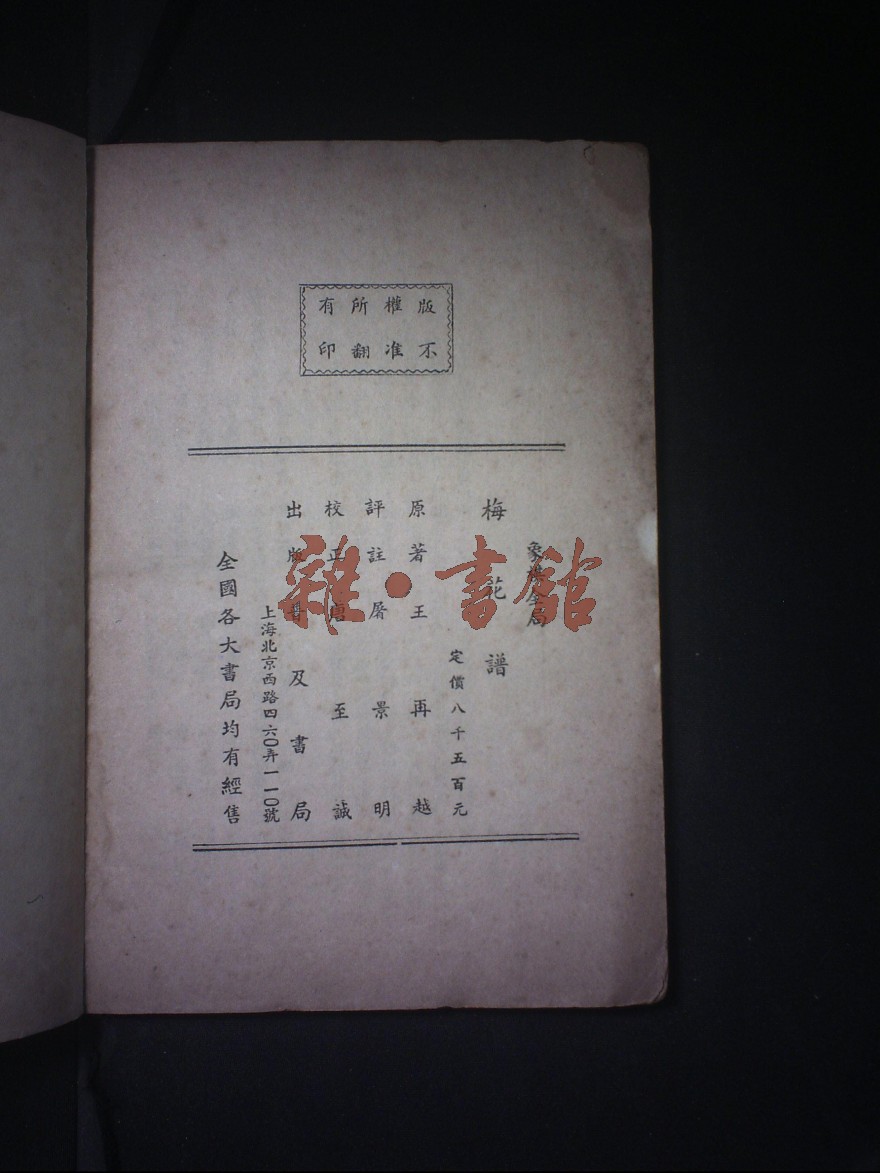 版權所有
不准翻印
象棋全局
梅花譜
定價八千五百元
原著王再越
評註屠景明
校正唐至誠
出版普及書局
上海北京西路四六〇弄一一〇號
全國各大書局均有經售
雜·書館